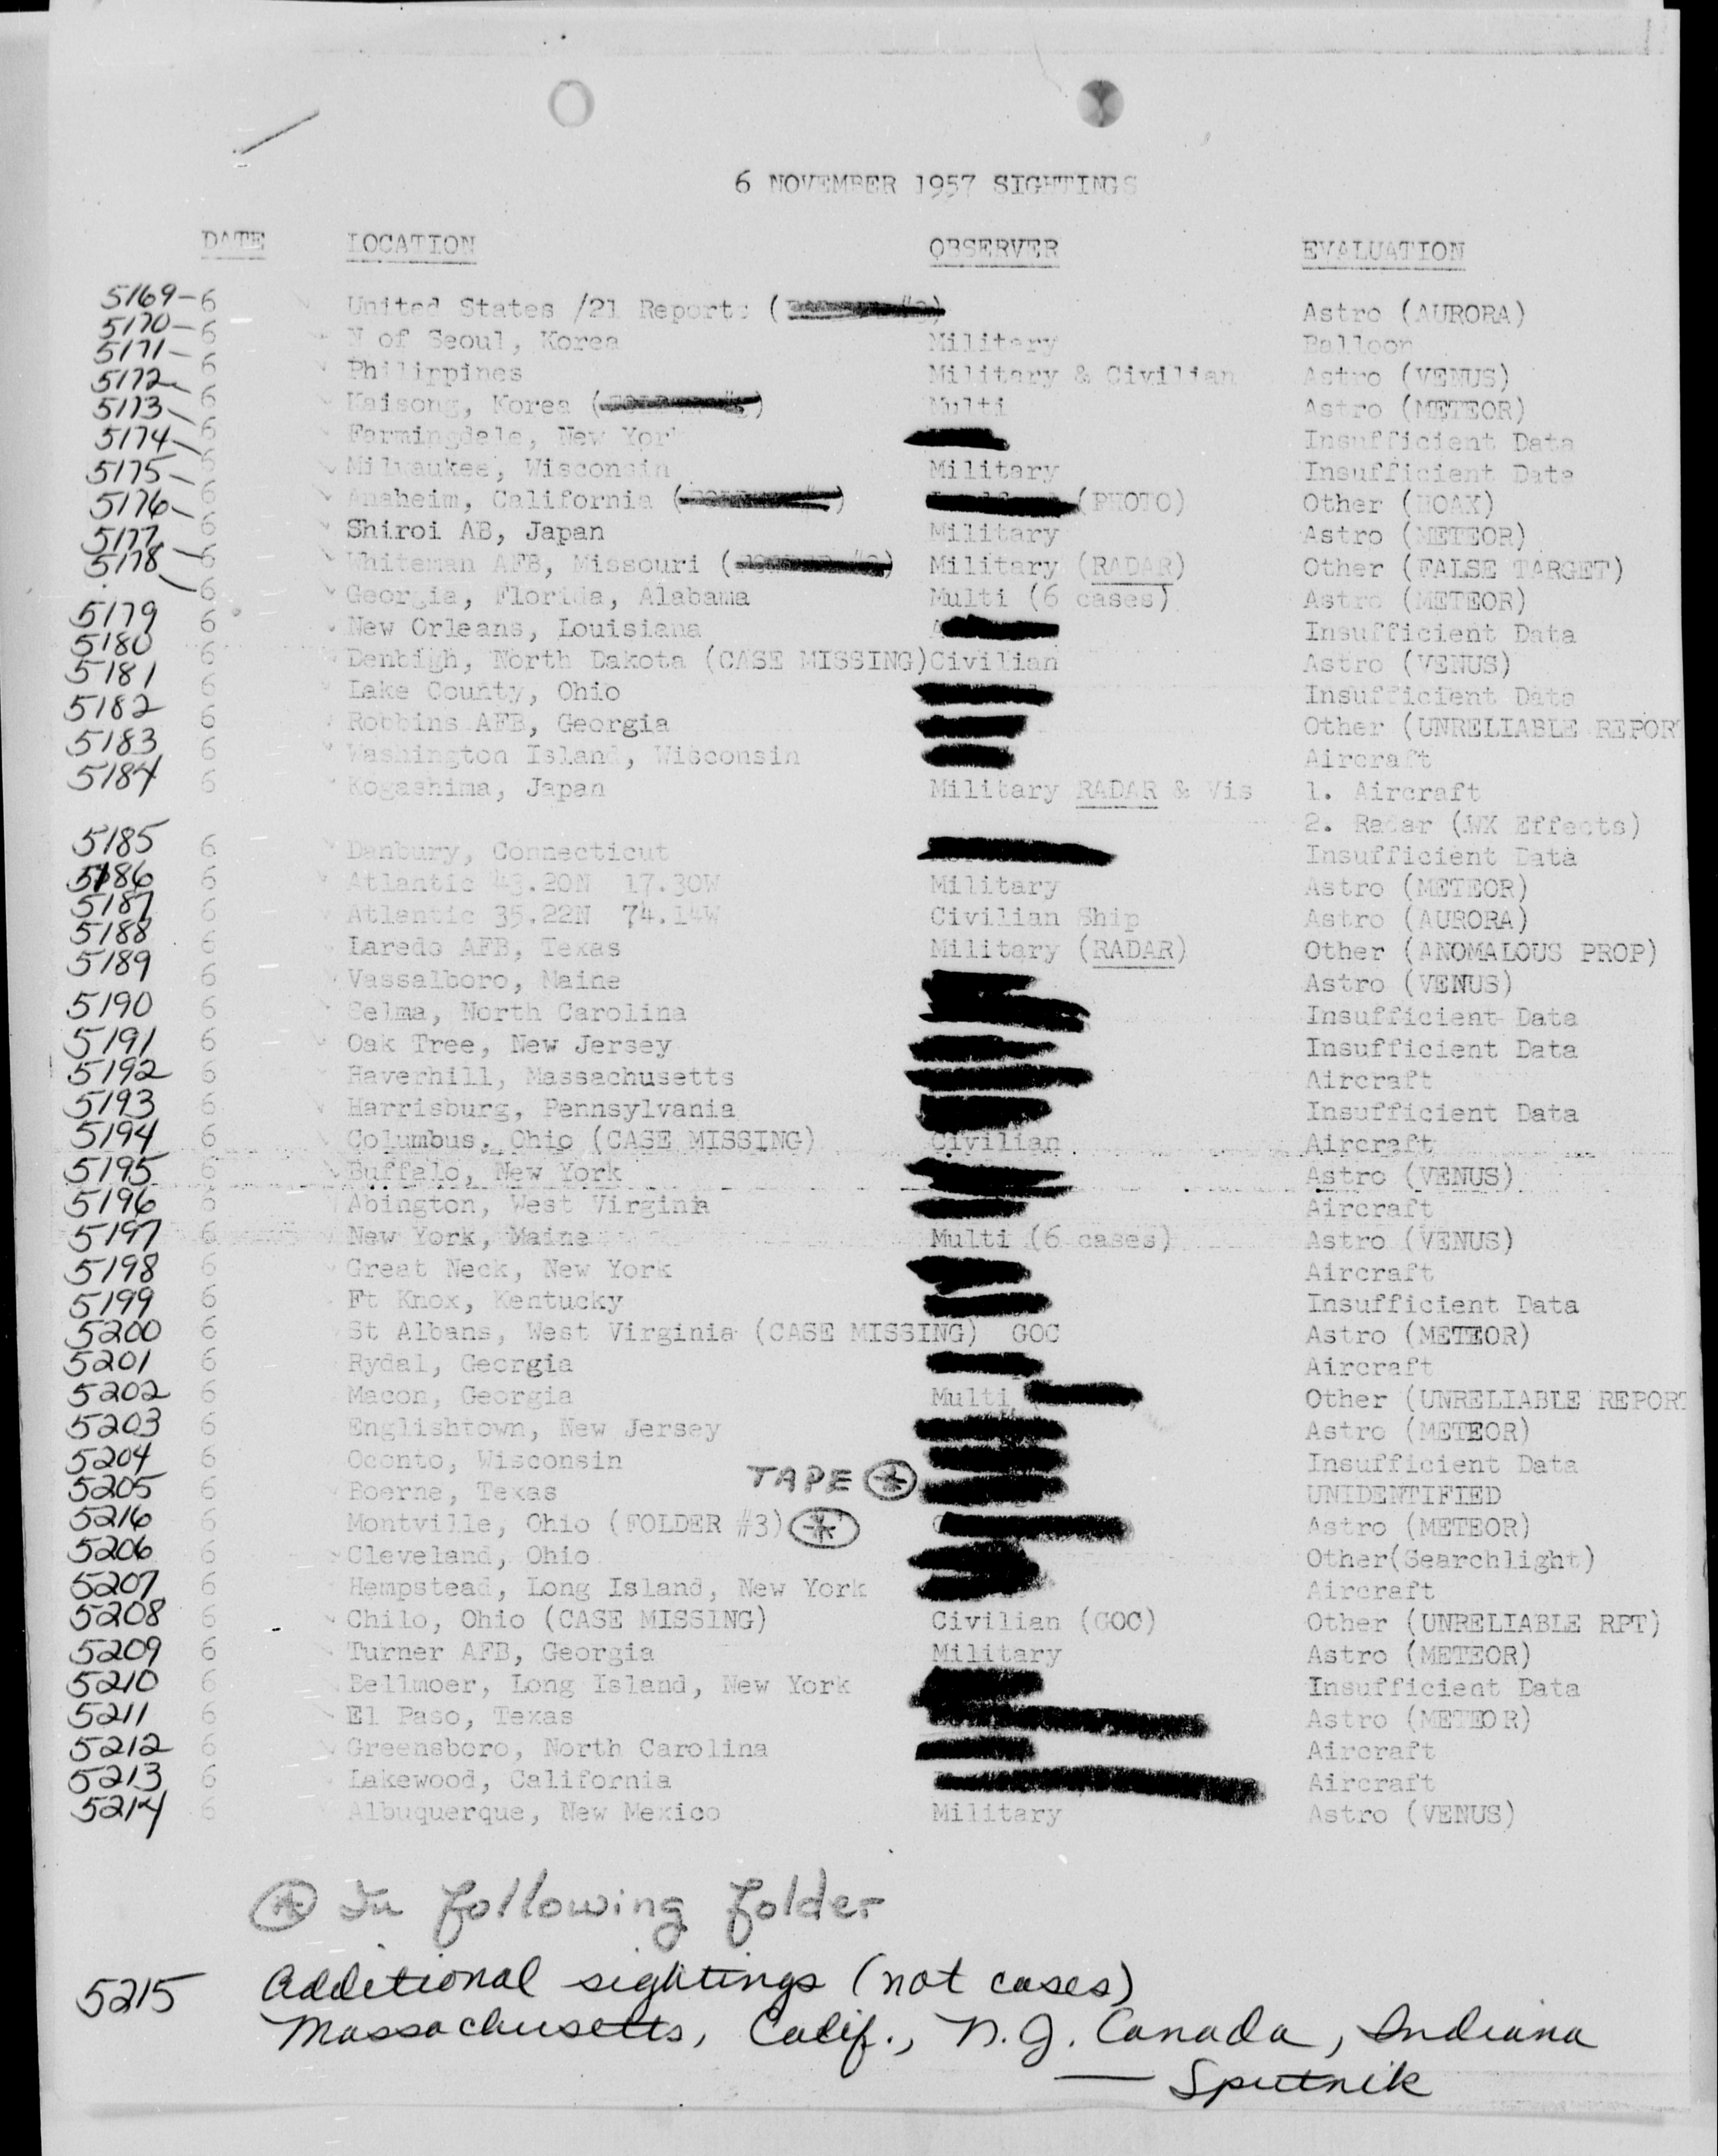 6 NOVEMBER 1957 SIGHTINGS
DATE LOCATION OBSERVER EVALUATION
5169-6 United States /21 Reports ( ) Astro (AURORA)
5170-6 N of Seoul, Korea Military Balloon
5171-6 Philippines Military & Civilian Astro (VENUS)
5172-6 Kaisong, Korea ( ) Multi Astro (METEOR)
5173-6 Farmingdale, New York Insufficient Data
5174-6 Milwaukee, Wisconsin Military Insufficient Data
5175-6 Anaheim, California ( ) (PHOTO) Other (HOAX)
5176-6 Shiroi AB, Japan Military Astro (METEOR)
5177-6 Whiteman AFB, Missouri ( ) Military (RADAR) Other (FALSE TARGET)
5178-6 Georgia, Florida, Alabama Multi (6 cases) Astro (METEOR)
5179 6 New Orleans, Louisiana Insufficient Data
5180 6 Denbigh, North Dakota (CASE MISSING) Civilian Astro (VENUS)
5181 6 Lake County, Ohio Insufficient Data
5182 6 Robbins AFB, Georgia Other (UNRELIABLE REPORT
5183 6 Washington Island, Wisconsin Aircraft
5184 6 Kogashima, Japan Military RADAR & Vis 1. Aircraft
2. Radar (WX Effects)
5185 6 Danbury, Connecticut Insufficient Data
5186 6 Atlantic 43.20N 17.30W Military Astro (METEOR)
5187 6 Atlantic 35.22N 74.14W Civilian Ship Astro (AURORA)
5188 6 Laredo AFB, Texas Military (RADAR) Other (ANOMALOUS PROP)
5189 6 Vassalboro, Maine Astro (VENUS)
5190 6 Selma, North Carolina Insufficient Data
5191 6 Oak Tree, New Jersey Insufficient Data
5192 6 Haverhill, Massachusetts Aircraft
5193 6 Harrisburg, Pennsylvania Insufficient Data
5194 6 Columbus, Ohio (CASE MISSING) Civilian Aircraft
5195 6 Buffalo, New York Astro (VENUS)
5196 6 Abington, West Virginia Aircraft
5197 6 New York, Maine Multi (6 cases) Astro (VENUS)
5198 6 Great Neck, New York Aircraft
5199 6 Ft Knox, Kentucky Insufficient Data
5200 6 St Albans, West Virginia (CASE MISSING) GOC Astro (METEOR)
5201 6 Rydal, Georgia Aircraft
5202 6 Macon, Georgia Multi Other (UNRELIABLE REPORT
5203 6 Englishtown, New Jersey Astro (METEOR)
5204 6 Oconto, Wisconsin Insufficient Data
5205 6 Boerne, Texas TAPE * UNIDENTIFIED
5216 6 Montville, Ohio (FOLDER #3) * Astro (METEOR)
5206 6 Cleveland, Ohio Other(Searchlight)
5207 6 Hempstead, Long Island, New York Aircraft
5208 6 Chilo, Ohio (CASE MISSING) Civilian (GOC) Other (UNRELIABLE RPT)
5209 6 Turner AFB, Georgia Military Astro (METEOR)
5210 6 Bellmoer, Long Island, New York Insufficient Data
5211 6 El Paso, Texas Astro (METEOR)
5212 6 Greensboro, North Carolina Aircraft
5213 6 Lakewood, California Aircraft
5214 6 Albuquerque, New Mexico Military Astro (VENUS)
* In following folder
5215 Additional sightings (not cases)
Massachusetts, Calif., N.J. Canada, Indiana
— Sputnik